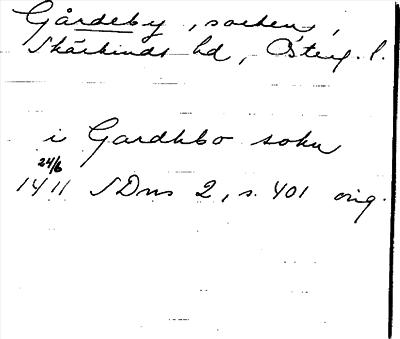 Gårdeby, socken,
Skärkinds hd, Österg. l.
i Gardhbo sokn
24/6
1411 SDns 2, s. 401 orig.